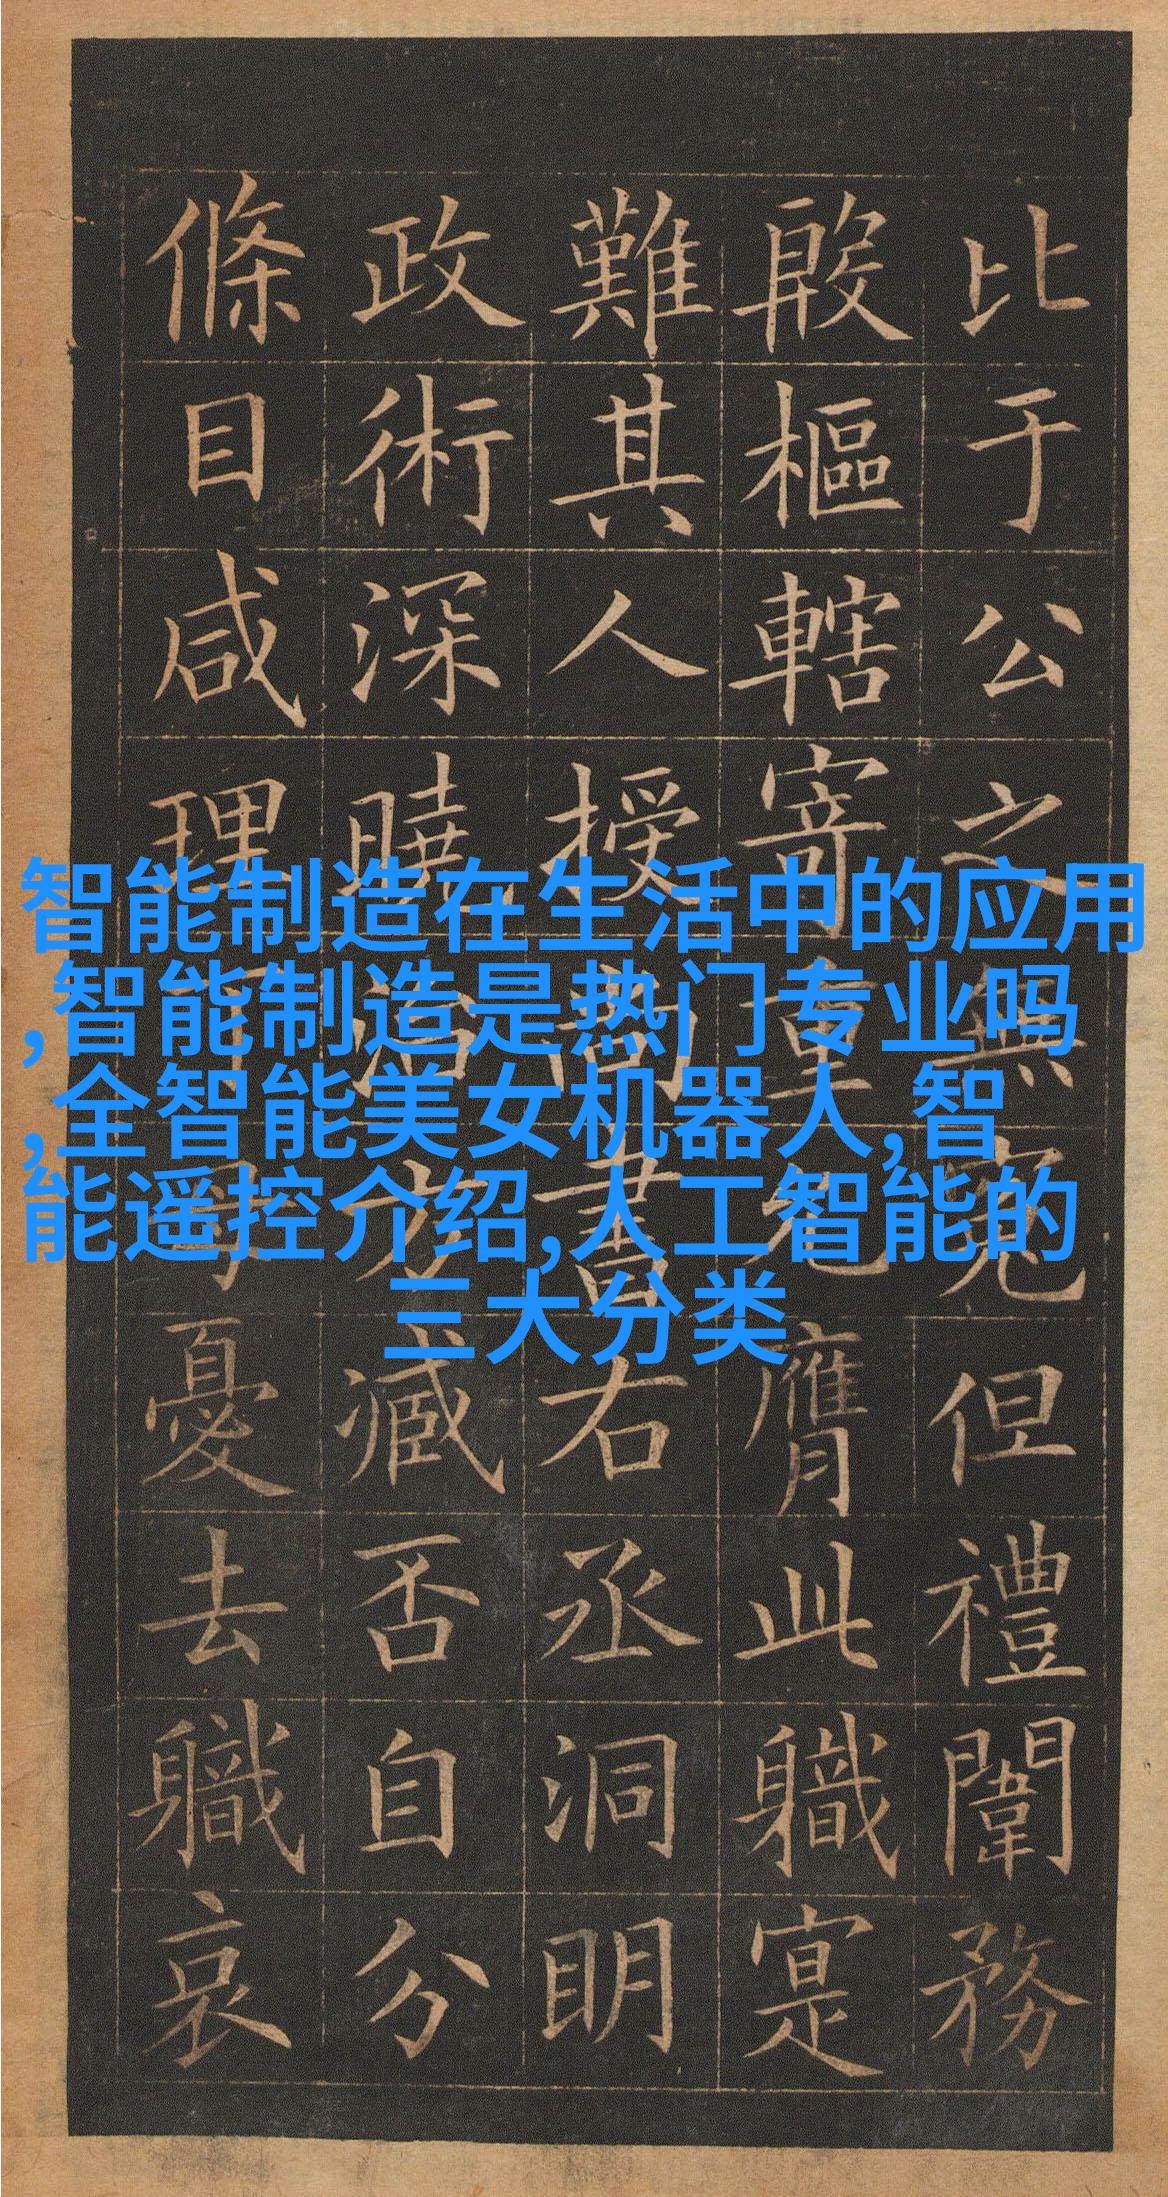 比于公之無寃但禮闈務
殷樞轄寄重允膺此職寔
難其人授尚書右丞洞明
政術深曉治方臧否自分
條目咸理丁母憂去職哀
智能制造在生活中的应用
,智能制造是热门专业吗
,全智能美女机器人,智
能遥控介绍,人工智能的
三大分类